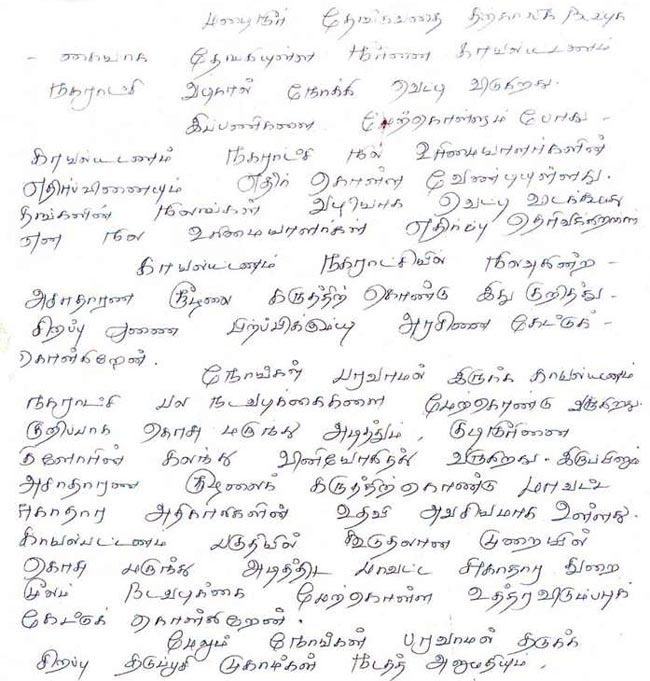 மழைநீர் தேங்குவதை தற்காலிக
- கையாக தேங்கியுள்ள நீரினை காயல்பட்டணம்
நகராட்சி வடிகால் நோக்கி வெட்டி விடுகிறது.
இப்பணிகளை மேற்கொள்ளும் போது -
காயல்பட்டணம் நகராட்சி நில உரிமையாளர்களின்
எதிர்ப்பினையும் எதிர் கொள்ள வேண்டியுள்ளது.
தங்களின் நிலங்கள் வழியாக வெட்டி
என நில உரிமையாளர்கள் எதிர்ப்பு தெரிவிக்கிறார்கள்
காயல்பட்டணம் நகராட்சியில் நிலவுகின்ற -
அசாதாரண சூழ்நிலை கருத்திற் கொண்டு இது குறித்து -
சிறப்பு ஆணை பிறப்பிக்கும்படி அரசினை கேட்டுக் -
கொள்கிறேன்.
நோய்கள் பரவாமல் இருக்க காயல்பட்டணம்
நகராட்சி பல நடவடிக்கைகளை மேற்கொண்டு வருகிறது.
குறிப்பாக கொசு மருந்து அடித்தும், குடிநீரினை
குளோரின் கலந்து வினியோகித்து வருகிறது. இருப்பினும்
அசாதாரண சூழ்நிலைக் கருத்திற்கொண்டு மாவட்ட
சுகாதார அதிகாரிகளின் உதவி அவசியமாக உள்ளது.
காயல்பட்டணம் பகுதியில் கூடுதலான முறையில்
கொசு மருந்து அடித்திட மாவட்ட சுகாதார துறை
மூலம் நடவடிக்கை மேற்கொள்ள உத்தரவிடும்படிக்
கேட்டுக் கொள்கிறேன்.
மேலும் நோய்கள் பரவாமல் தடுக்க
சிறப்பு தடுப்பூசி முகாம்கள் நடத்த அனுமதியும்,